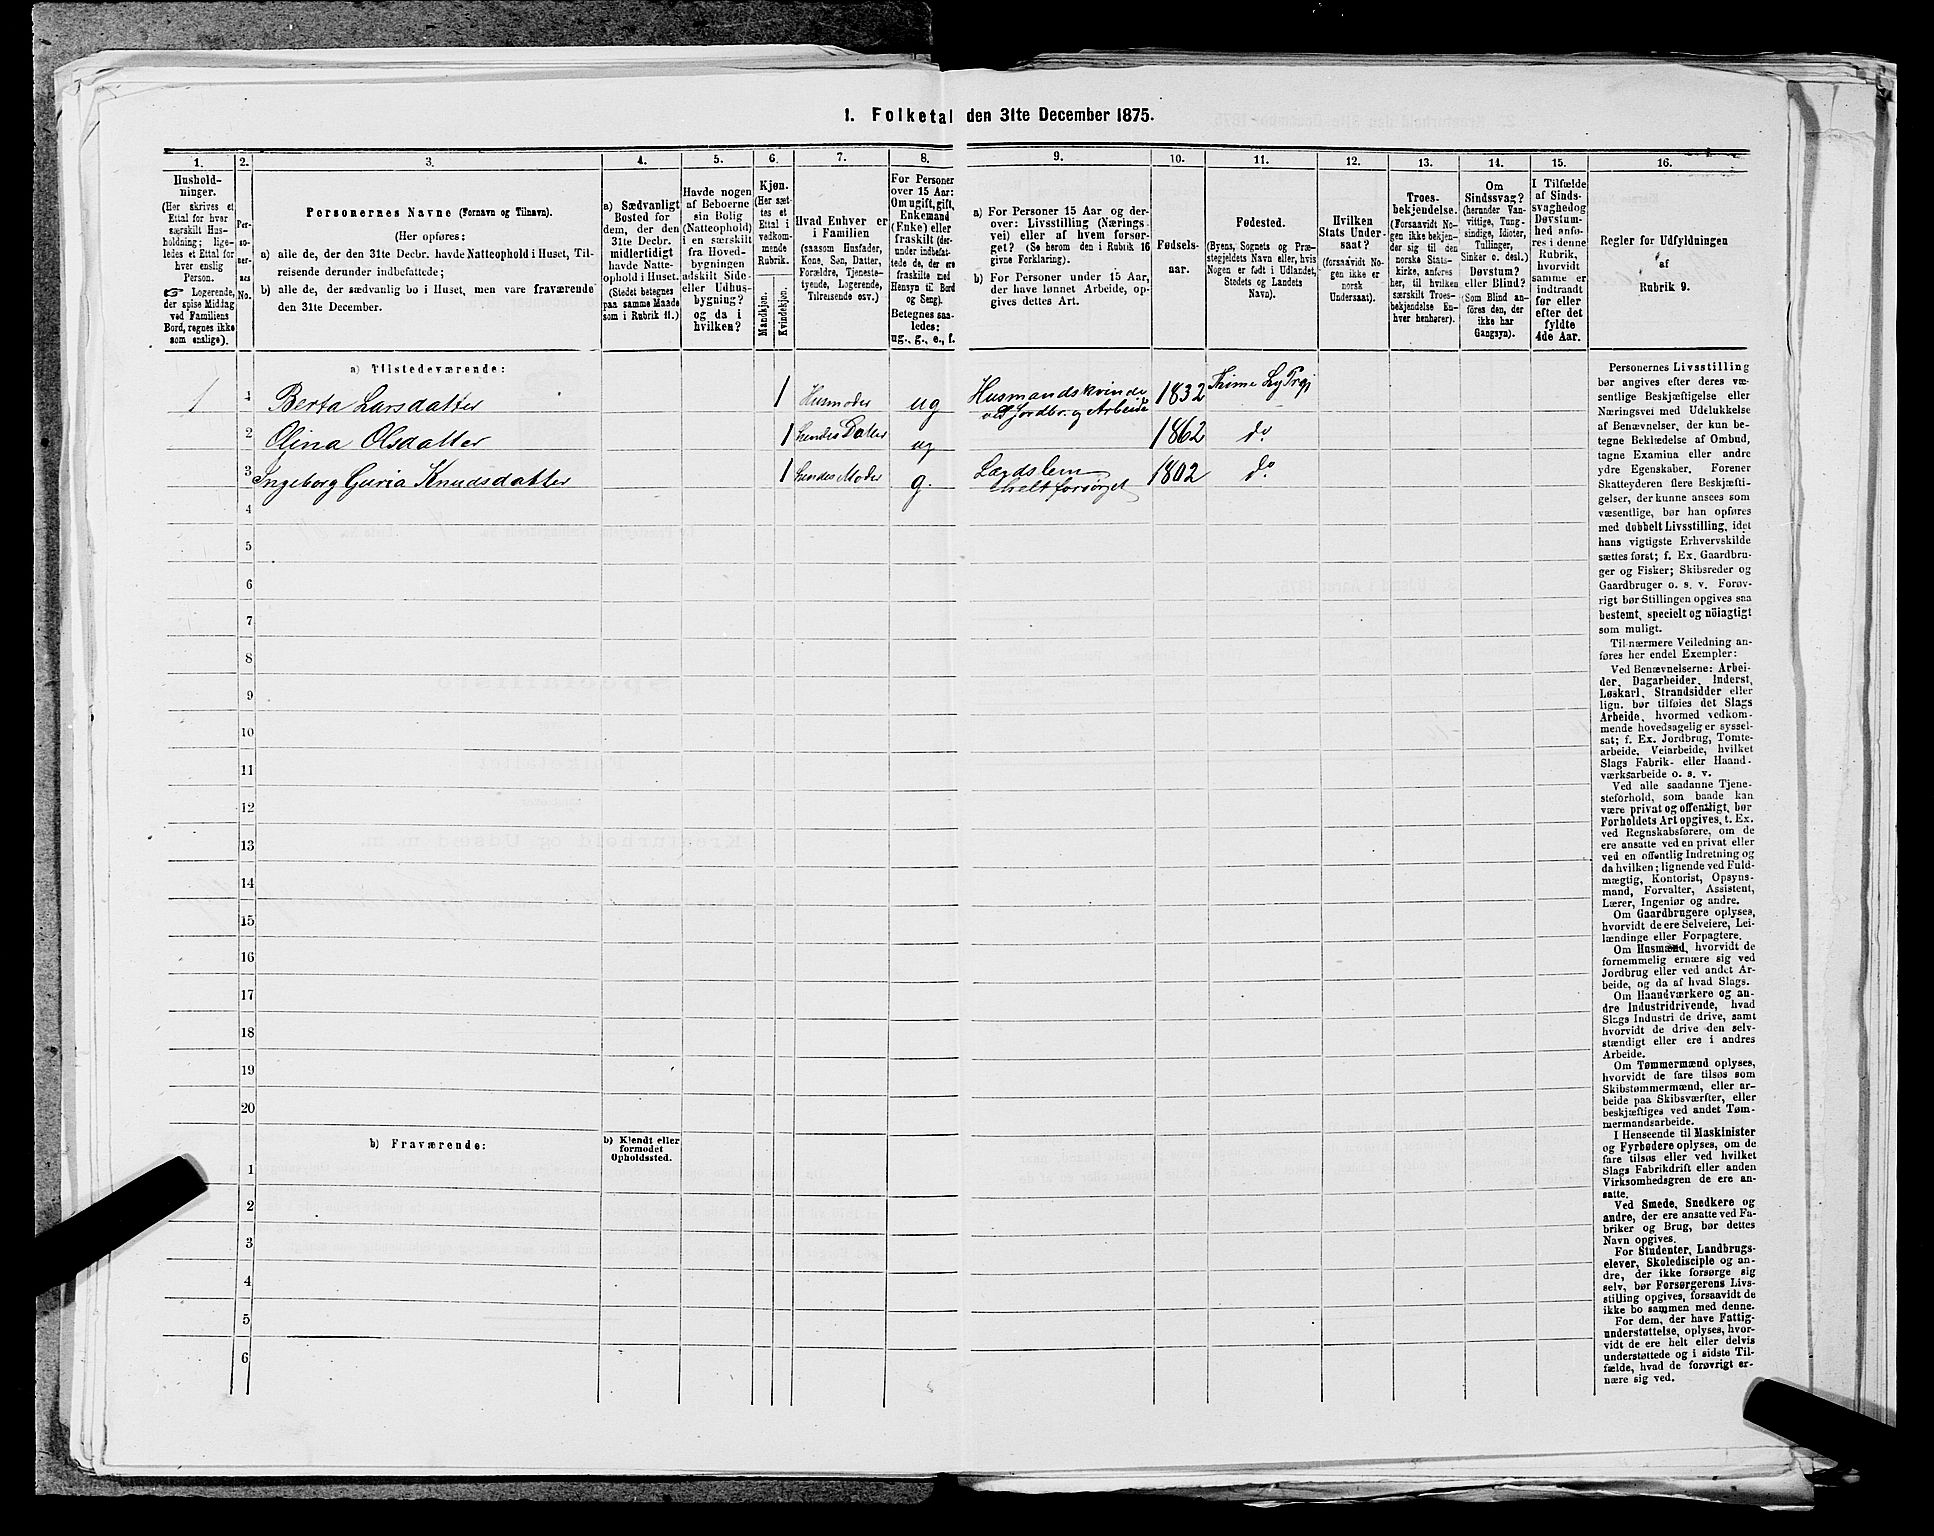 1. Folketal den 31te December 1875.
1.
2.
3.
4.
5.
6.
7.
8.
9.
10.
11.
12.
13.
14.
15.
16.
Hushold-
ninger.
(Her skrives et
Ettal for hver
særskilt Hus-
holdning; lige-
ledes et Ettal for
hver enslig
Person.
☞ Logerende,
der spise Middag
ved Familiens
Bord, regnes ikke
som enslige).
Per-
so-
ner-
nes
No.
Personernes Navne (Fornavn og Tilnavn).
(Her opføres:
a) alle de, der den 31te Decbr. havde Natteophold i Huset, Til-
reisende derunder indbefattede;
b) alle de, der sædvanlig bo i Huset, men vare fraværende
den 31te December.
a) Sædvanligt
Bosted for
dem, der den
31te Decbr.
midlertidigt
havde Natte-
ophold i Huset.
(Stedet betegnes
paa samme Maade
som i Rubrik 11.)
Havde nogen
af Beboerne
sin Bolig
(Natteophold)
i en særskilt
fra Hoved-
bygningen
adskilt Side-
eller Udhus-
bygning?
og da i
hvilken?
Kjøn.
(Her sæt-
tes et
Ettal i
vedkom-
mende
Rubrik.
Mandkjøn.
Kvindekjøn.
Hvad Enhver er
i Familien
(saasom Husfader,
Kone, Søn, Datter,
Forældre, Tjeneste-
tyende, Logerende,
Tilreisende osv.)
For Personer
over 15 Aar:
Om ugift, gift,
Enkemand
(Enke) eller
fraskilt (der-
under indbefat-
tede de, der ere
fraskilte med
Hensyn til Bord
og Seng).
Betegnes saa-
ledes:
ug., g., e., f.
a) For Personer 15 Aar og der-
over: Livsstilling (Nærings-
vei) eller af hvem forsør-
get? (Se herom den i Rubrik 16
givne Forklaring).
b) For Personer under 15 Aar,
der have lønnet Arbeide, op-
gives dettes Art.
Fødsels-
aar.
Fødested.
(Byens, Sognets og Præ-
stegjeldets Navn eller, hvis
Nogen er født i Udlandet,
Stedets og Landets
Navn).
Hvilken
Stats Under-
saat?
(forsaavidt No-
gen ikke er
norsk
Undersaat).
Troes-
bekjendelse.
(Forsaavidt No-
gen ikke bekjen-
der sig til den
norske Stats-
kirke, anføres
her, til hvilken
særskilt Troes-
bekjendelse En-
hver henhører).
Om
Sindssvag?
(herunder Van-
vittige, Tung-
sindige, Idioter,
Tullinger,
Sinker o. desl.)
Døvstum?
eller Blind?
(Som Blind an-
føres den, der
ikke har
Gangsyn).
I Tilfælde
af Sinds-
svaghed og
Døvstum-
hed anfø-
res i denne
Rubrik,
hvorvidt
samme er
indtraadt
før eller
efter det
fyldte
4de Aar.
Regler for Udfyldningen
af
Rubrik 9.
a) Tilstedeværende:
1 1 Berta Larsdatter 1 Husmoder ug Husmandskvinde 1832 Thime Ly Prgj
ved Jordbr. og Arbeide
2 Olina Olsdatter 1 hendes Datter ug 1862 do
3 Ingeborg Guria Knudsdatter 1 hendes Moder g. Lægdslem 1802 do
helt forsørget
4
5
6
7
8
9
10
11
12
13
14
15
16
17
18
19
20
b) Fraværende:
b) Kjendt eller
formodet
Opholdssted.
1
2
3
4
5
6
Personernes Livsstilling
bør angives efter deres væ-
sentlige Beskjæftigelse eller
Næringsvei med Udelukkelse
af Benævnelser, der kun be-
tegne Beklædelse af Ombud,
tagne Examina eller andre
ydre Egenskaber. Forener
Skatteyderen flere Beskjæfti-
gelser, der kunne ansees som
væsentlige, bør han opføres
med dobbelt Livsstilling, idet
hans vigtigste Erhvervskilde
sættes først; f. Ex. Gaardbru-
ger og Fisker; Skibsreder og
Gaardbruger o. s. v. Forøv-
rigt bør Stillingen opgives saa
bestemt, specielt og nöiagtigt
som muligt.
Til nærmere Veiledning an-
føres her endel Exempler:
Ved Benævnelserne: Arbei-
der, Dagarbeider, Inderst,
Løskarl, Strandsidder eller
lign. bør tilføies det Slags
Arbeide, hvormed vedkom-
mende hovedsagelig er syssel-
sat; f. Ex. Jordbrug, Tomte-
arbeide, Veiarbeide, hvilket
Slags Fabrik- eller Haand-
værksarbeide o. s. v.
Ved alle saadanne Tjene-
steforhold, som baade kan
være privat og offentligt, bør
Forholdets Art opgives, t. Ex.
ved Regnskabsførere, om de
ere ansatte ved en privat eller
ved en offentlig Indretning og
da hvilken; lignende ved Fuld-
mægtig, Kontorist, Opsyns-
mand, Forvalter, Assistent,
Lærer, Ingeniør og andre.
Om Gaardbrugere oplyses,
hvorvidt de ere Selveiere, Lei-
lændinge eller Forpagtere.
Om Husmænd, hvorvidt de
fornemmelig ernære sig ved
Jordbrug eller ved andet Ar-
beide, og da af hvad Slags.
Om Haandværkere og an-
dre Industridrivende, hvad
Slags Industri de drive, samt
hvorvidt de drive den selv-
stændigt eller ere i andres
Arbeide.
Om Tømmermænd oplyses,
hvorvidt de fare tilsøs som
Skibstømmermænd, eller ar-
beide paa Skibsværfter, eller
beskjæftiges ved andet Tøm-
mermandsarbeide.
I Henseende til Maskinister
og Fyrbødere oplyses, om de
fare tilsøs eller ved hvilket
Slags Fabrikdrift eller anden
Virksomhedsgren de ere an-
satte.
Ved Smede, Snedkere og
andre, der ere ansatte ved Fa-
briker og Brug, bør dettes
Navn opgives.
For Studenter, Landbrugs-
elever, Skoledisciple og an-
dre, der ikke forsørge sig
selv, bør Forsørgerens Livs-
stilling opgives, forsaavidt de
ikke bo sammen med denne.
For dem, der have Fattig-
understøttelse, oplyses, hvor-
vidt de ere helt eller delvis
understøttede og i sidste Til-
fælde, hvad de forøvrigt er-
nære sig ved.